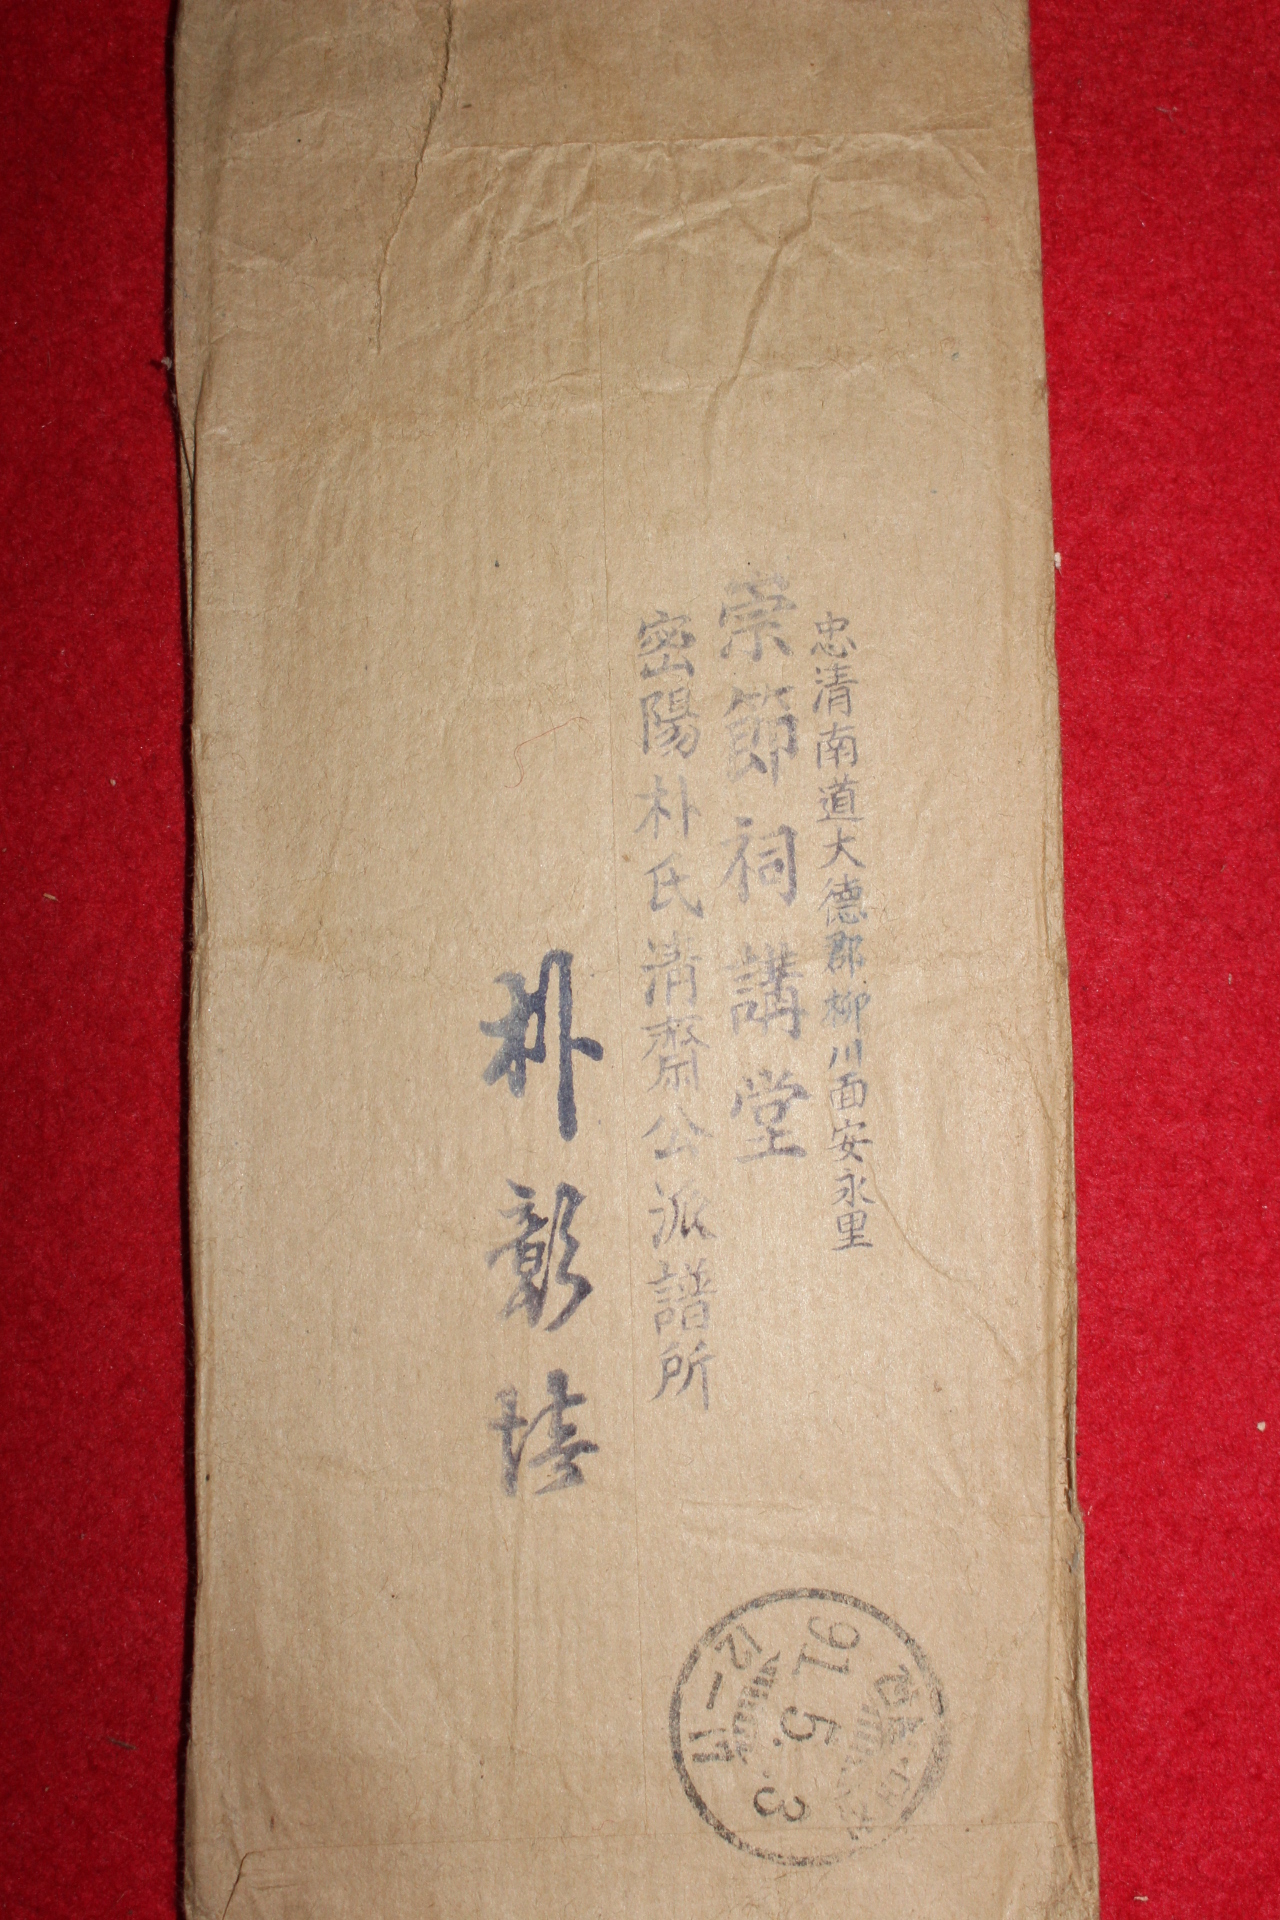 忠清南道大德郡柳川面安永里
崇節祠講堂
密陽朴氏清齋公派譜所
朴彰
91.5.3